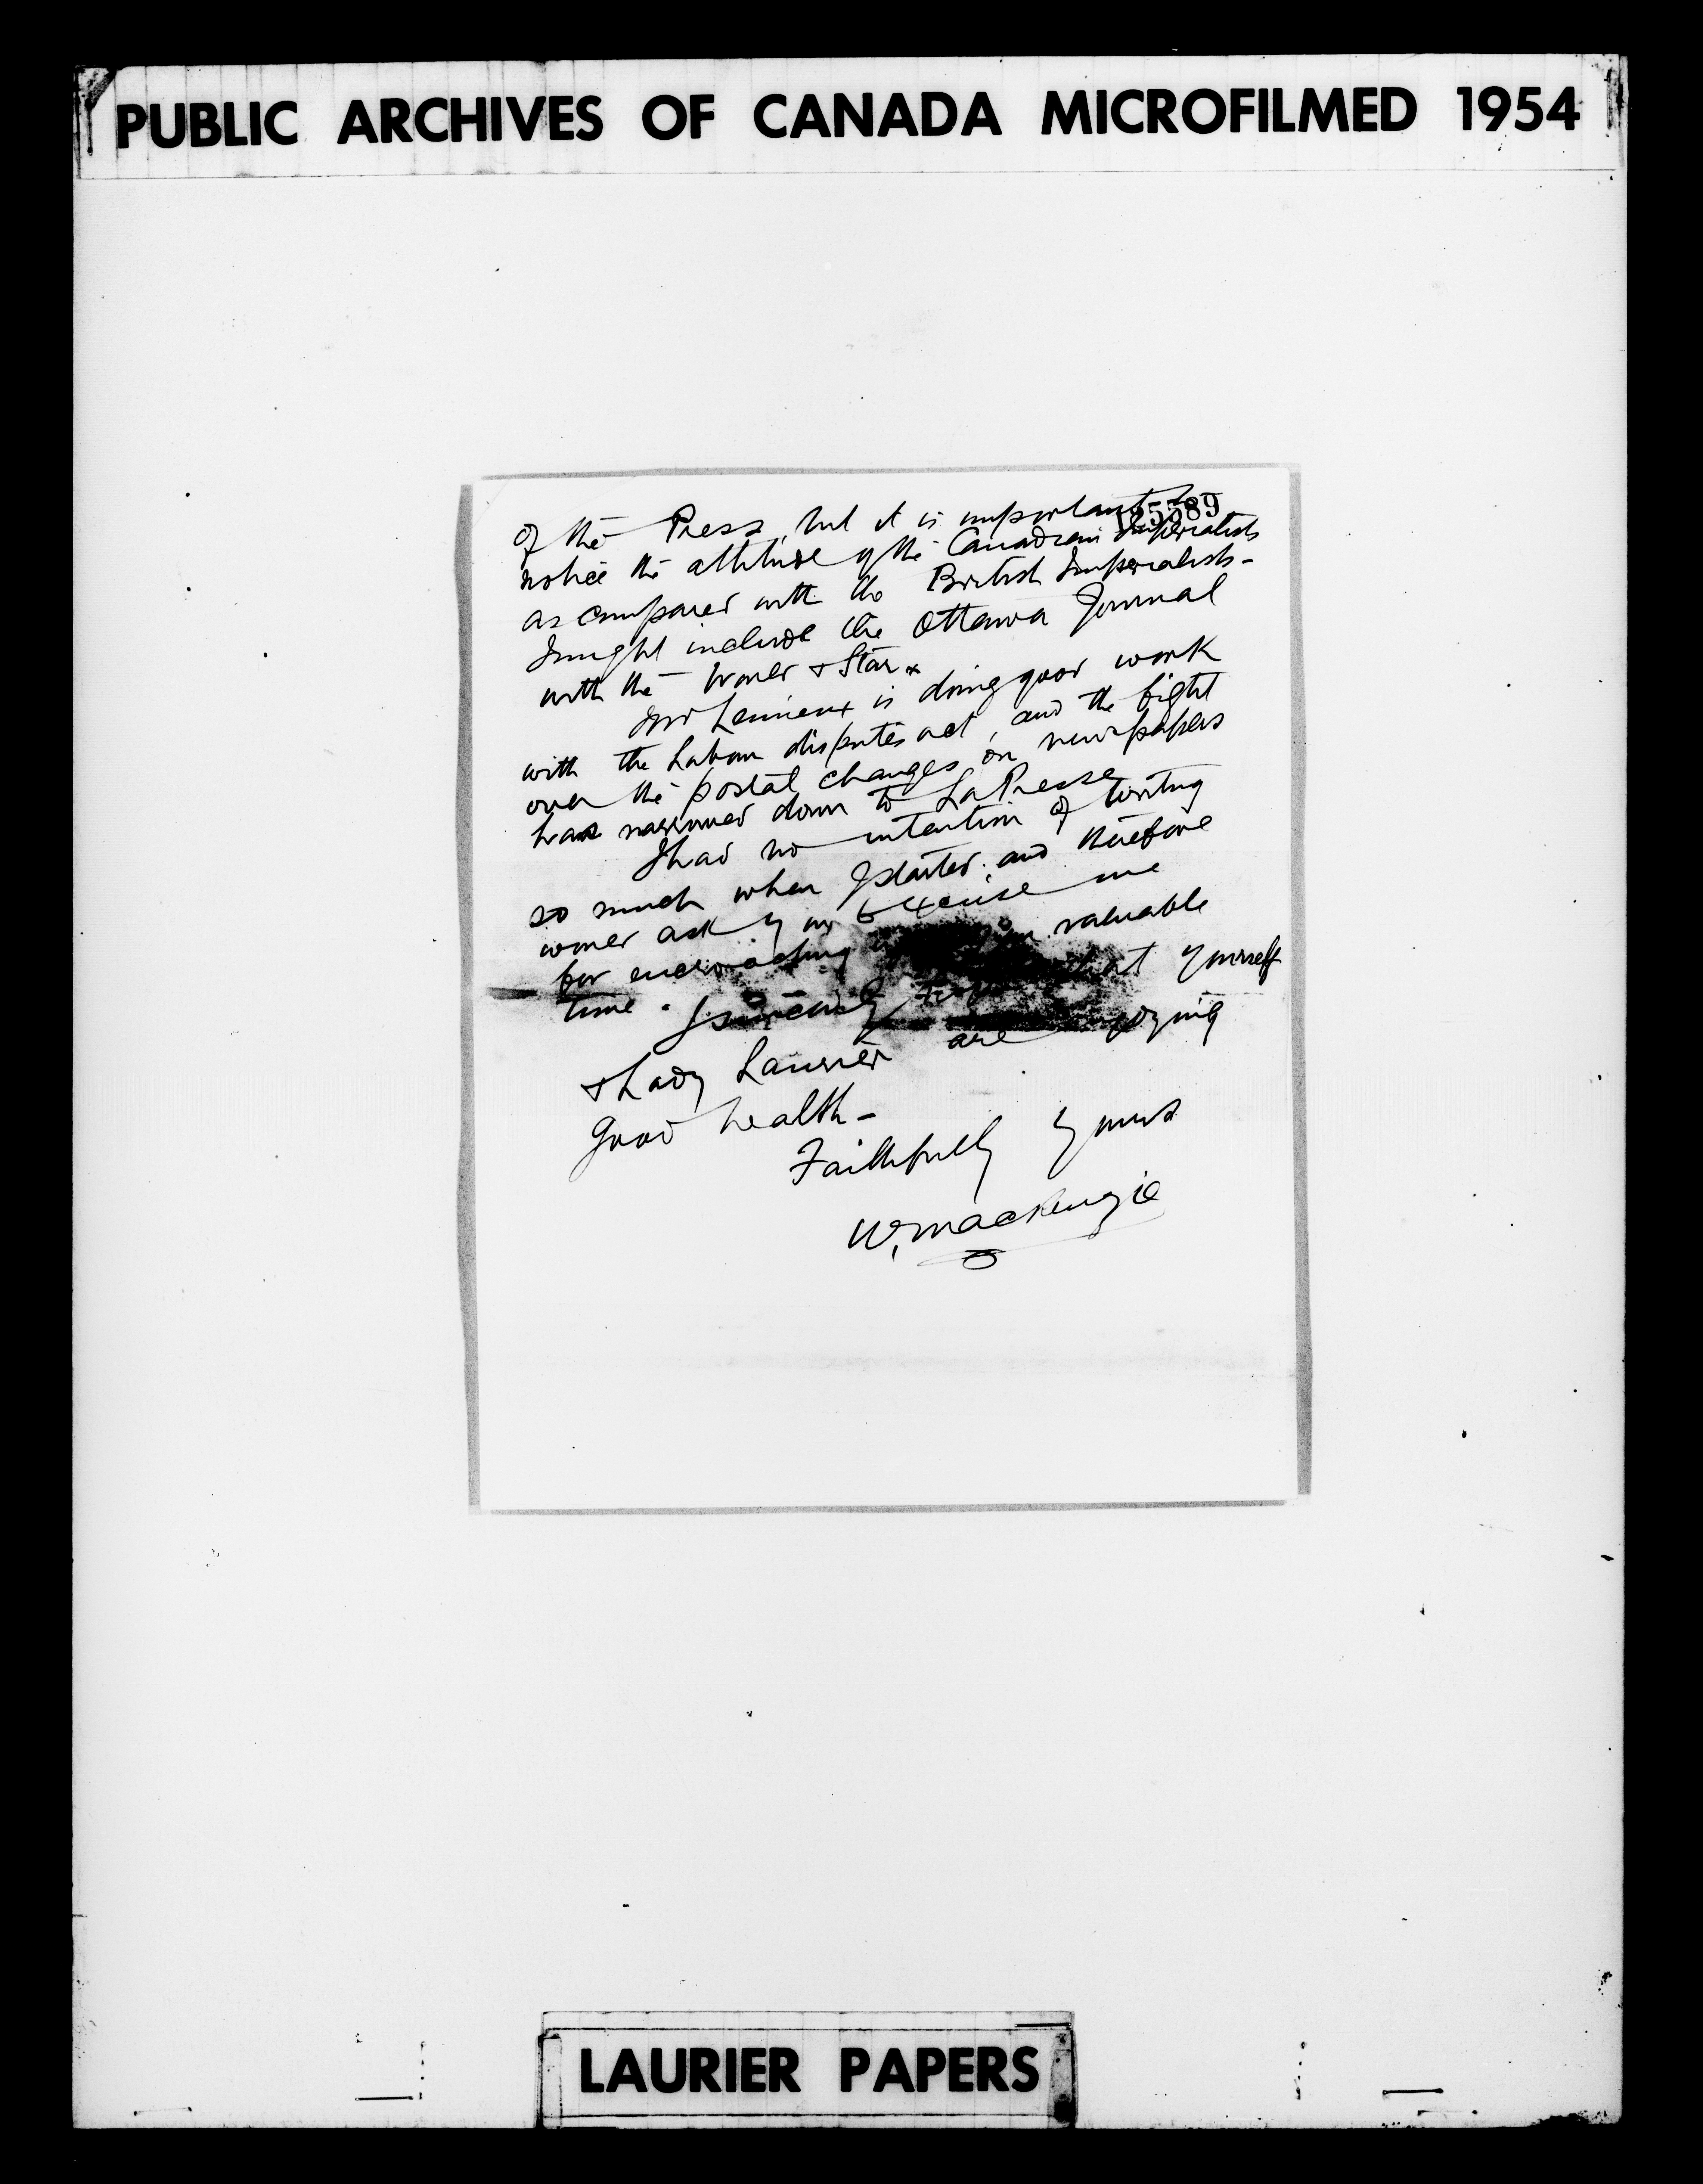 PUBLIC ARCHIVES OF CANADA MICROFILMED 1954
125589
of the Press, but it is important to
notice the attitude of the Canadian Imperialists
as compared with the British Imperialists -
I might include the Ottawa Journal
with the World & Star.
Mr Lemieux is doing good work
with the Labour disputes act, and the fight
over the postal changes on newspapers
has narrowed down to La Presse
I had no intention of writing
so much when I started, and therefore
would ask you to excuse me
for encroaching your valuable
time. I sincerely that yourself
& Lady Laurier are enjoying
good health -
Faithfully yours
W. Mackenzie
LAURIER PAPERS